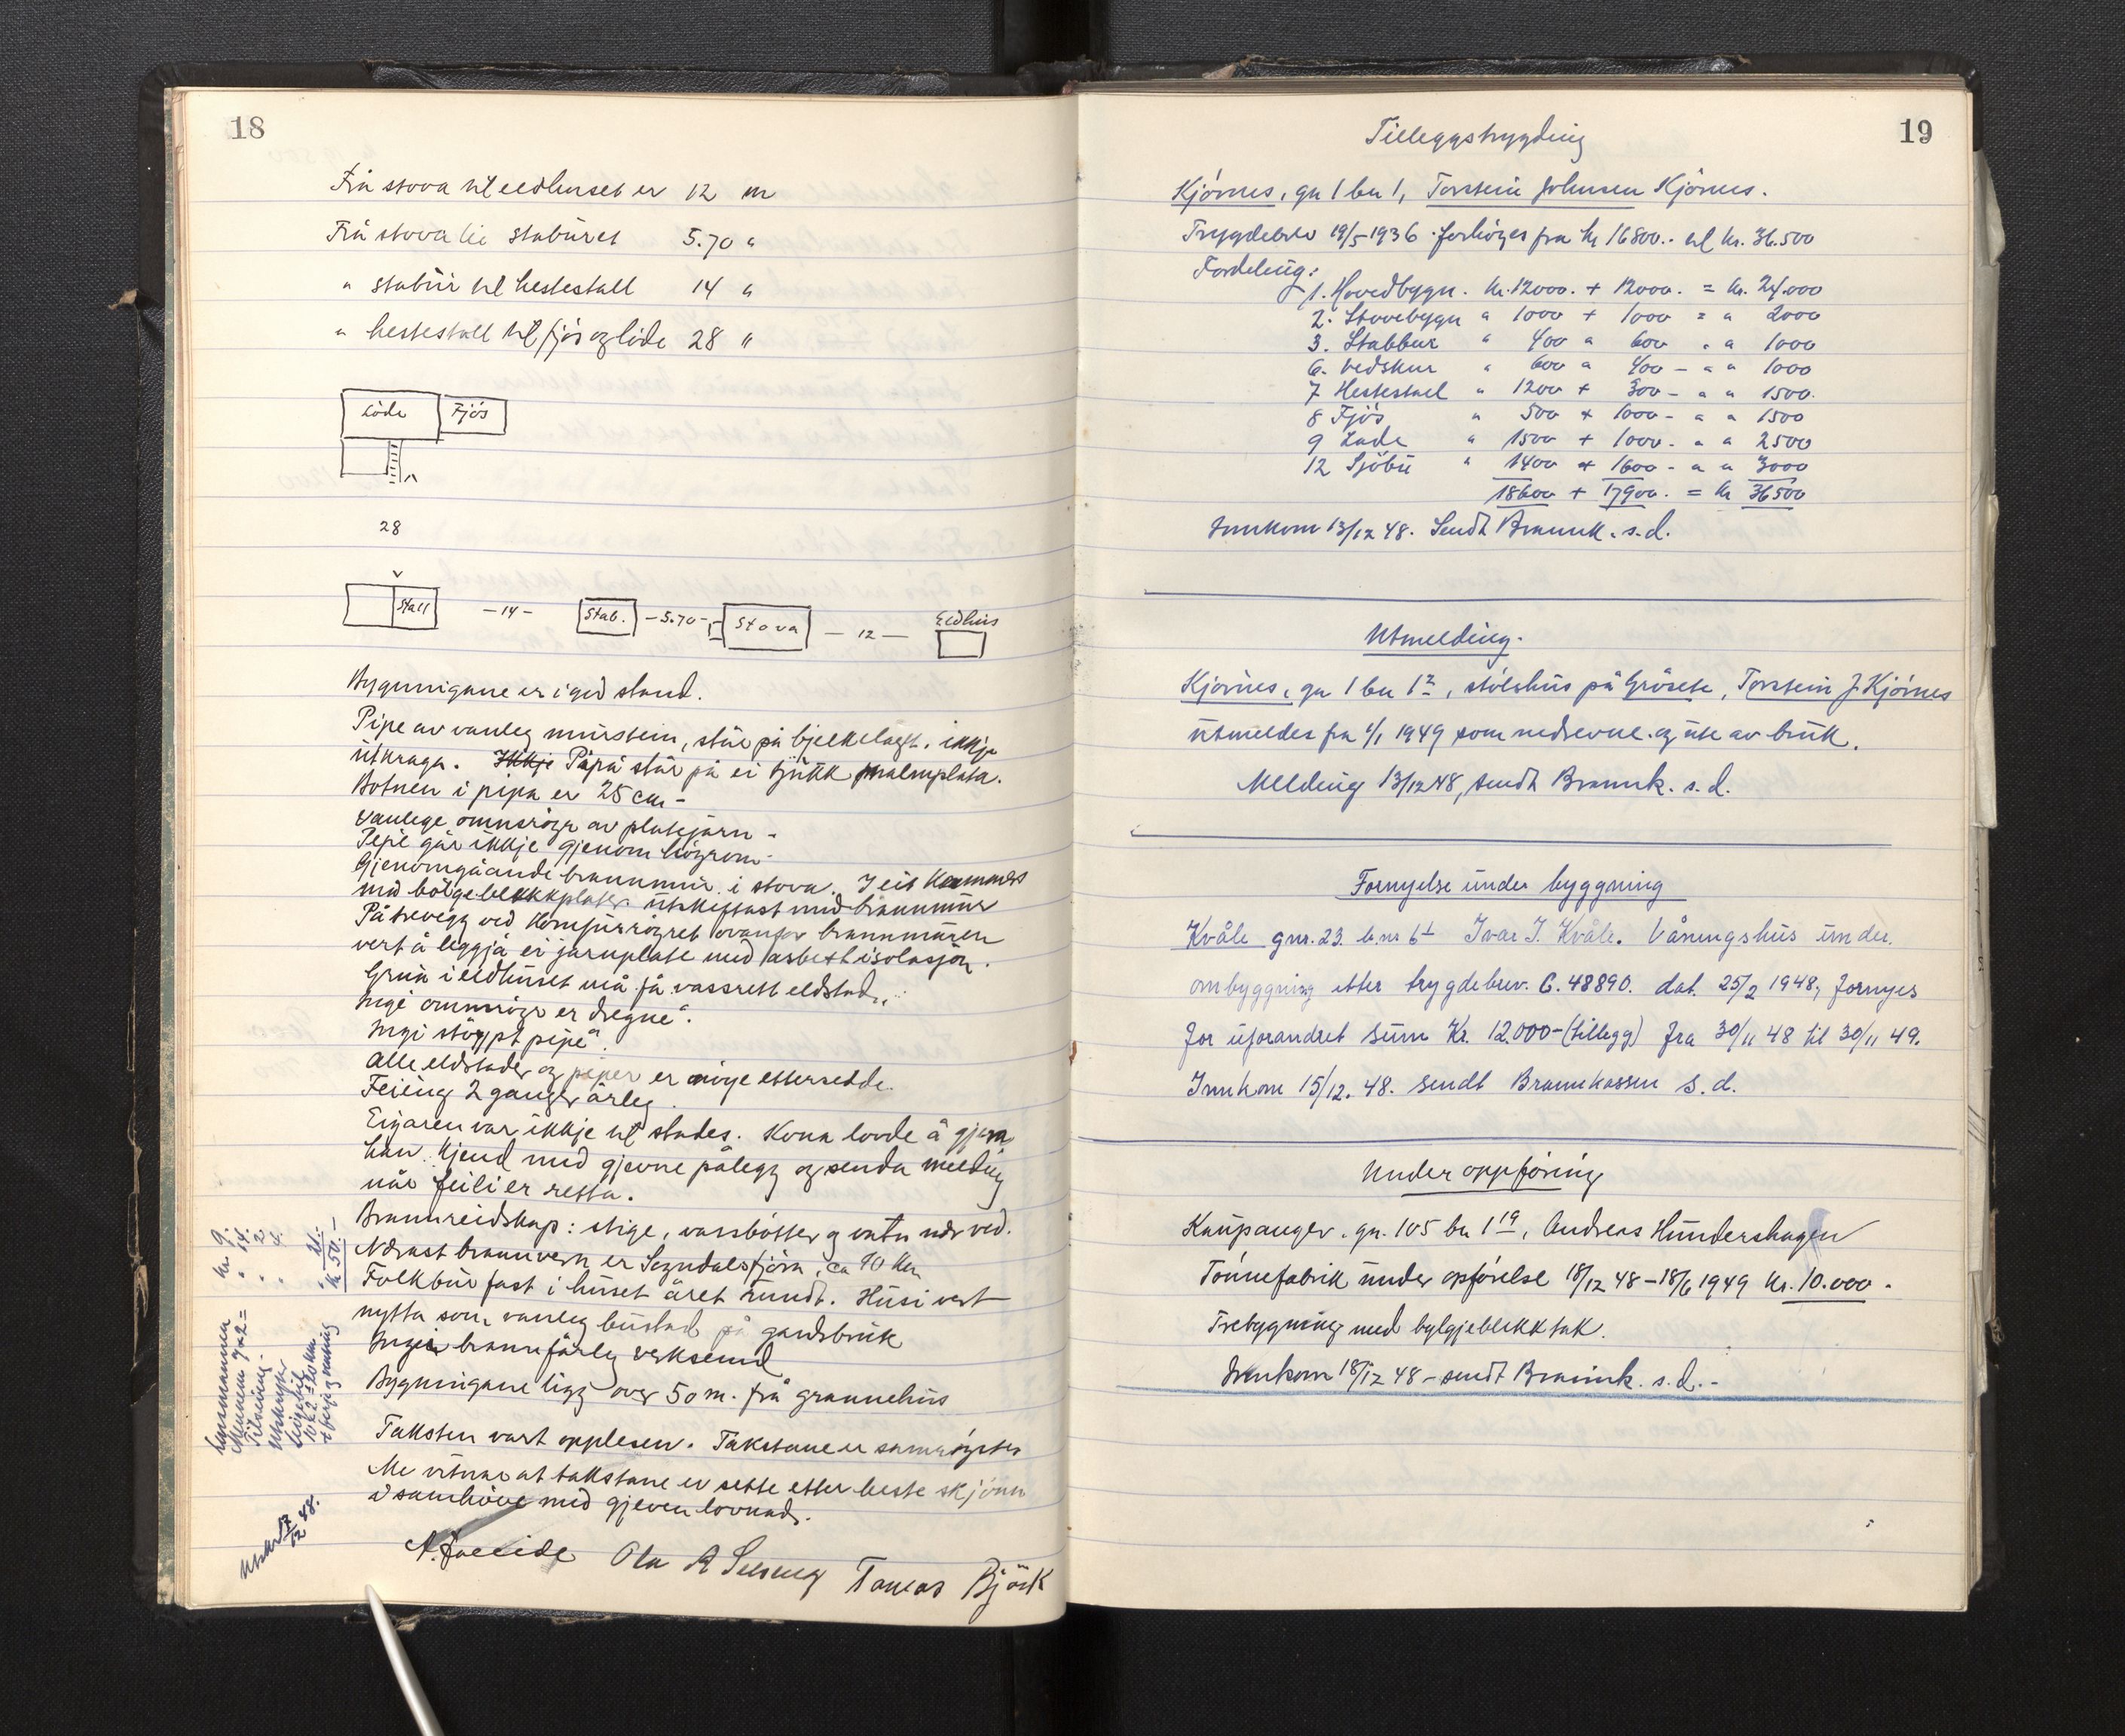 18
Frå stova til eldhuset er 12 m
Frå stova til stabüret 5.70 "
" stabür til hestestall 14 "
" hestestall til fjös og löde 28 "
Löde Fjös
28
Stall - 14 - Stab. - 5.70 - Stova - 12 - Eldhüs
Bygningane er i god stand.
Pipe av vanleg mürstein, står på bjelkelaget, ikkje
ütkraga. Ikkje Pipå står på ei tjükk malmplata.
Botnen i pipa er 25 cm -
vanlege omnsröyr av platejärn -
Pipe går ikkje gjenom höyrom.
Gjenomgåande brannmür i stova. I eit kammers
med bölgeblekkplater ütskiftast med brannmür
På trevegg ved komfürröyret ovanfor brannmüren
vert å leggja ei järnplate med asbest isolasjon.
Grüa i eldhüset må få vassrett eldstad.
Ingi omnsröyr er dregne.
Ingi stöypt pipe.
Alle eldstader og piper er nöye ettersedde.
Feiing 2 ganger årleg.
Eigaren var ikkje til stades. Kona lovde å gjera
han kjend med gjevne pålegg og senda melding
når feili er retta.
Brannreidskap: stige, vassbötter og vatn nær ved.
Nærast brannvern er Sogndalsfjöra, ca 10 km
Folk bür fast i hüset året rundt. Hüsi vert
nytta som vanleg büstad på gardsbrük
Ingi brannfårleg verksemd
Bygningane ligg over 50 m. frå grannehüs
Taksten vart opplesen. Takstane er samröystes
Me vitnar at takstane er sette etter beste skjönn
i samhöve med gjeven lovnad.
Ola A Tomas Björk
Lensmannen kr. 9.
Mennene 7 x 2 = " 14.
Tilsening - " 2
Utskrift " 4.
10 x 2 = 20 km
" 21.
kr 50.-
Utskr 17/12 48.
19
Tilleggstrygding
Kjörnes, gn 1 bn 1, Torstein Johnsen Kjörnes.
Trygdebrev 19/5-1936 forhöges fra kr 16800.- til kr. 36.500
Fordeling:
1. Hovedbygn. kr. 12000. + 12000. = kr. 24.000
2. Stovebygn " 1000 + 1000 = " 2000
3. Stabbur " 400 " 600 " " 1000
6. Vedskur " 600 " 400 - " " 1000
7 Hestestall " 1200 + 300 - " " 1500.
8 Fjös " 500 + 1000 - " " 1500
9 Lade " 1500 + 1000. " " 2500
12 Sjöbü " 1400 + 1600 - " " 3000
18600 + 17900. = kr 36500
Innkom 13/12 48. Sendt Brannk. s.d.
Utmelding.
Kjörnes, gn 1 bn 1 2, stölshüs på Gröseto, Torstein J. Kjörnes
ütmeldes fra 1/1 1949 som nedrevne og üte av brük.
Melding 13/12 48, sendt Brannk. s. d.
Fornyelse ünder byggning
Kvåle gnr. 23. b.nr 6 1 Ivar I. Kvåle. Våningshüs ünder
ombyggning etter trygdebrev. G. 48890. dat. 25/2 1948, fornyes
for üforandret süm Kr. 12.000- (tillegg) fra 30/11 48 til 30/11 49.
Innkom 15/12. 48. sendt Brannkassen s. d.
Under oppföring
Kaüpanger. gn. 105 bn 1 19, Andreas Hündershagen
Tönnefabrik ünder opförelse 18/12 48 - 18/6 1949 kr. 10.000.
Trebygning med bylgjeblikk tak.
Innkom 18/12 48 - sendt Brannk. s. d. -